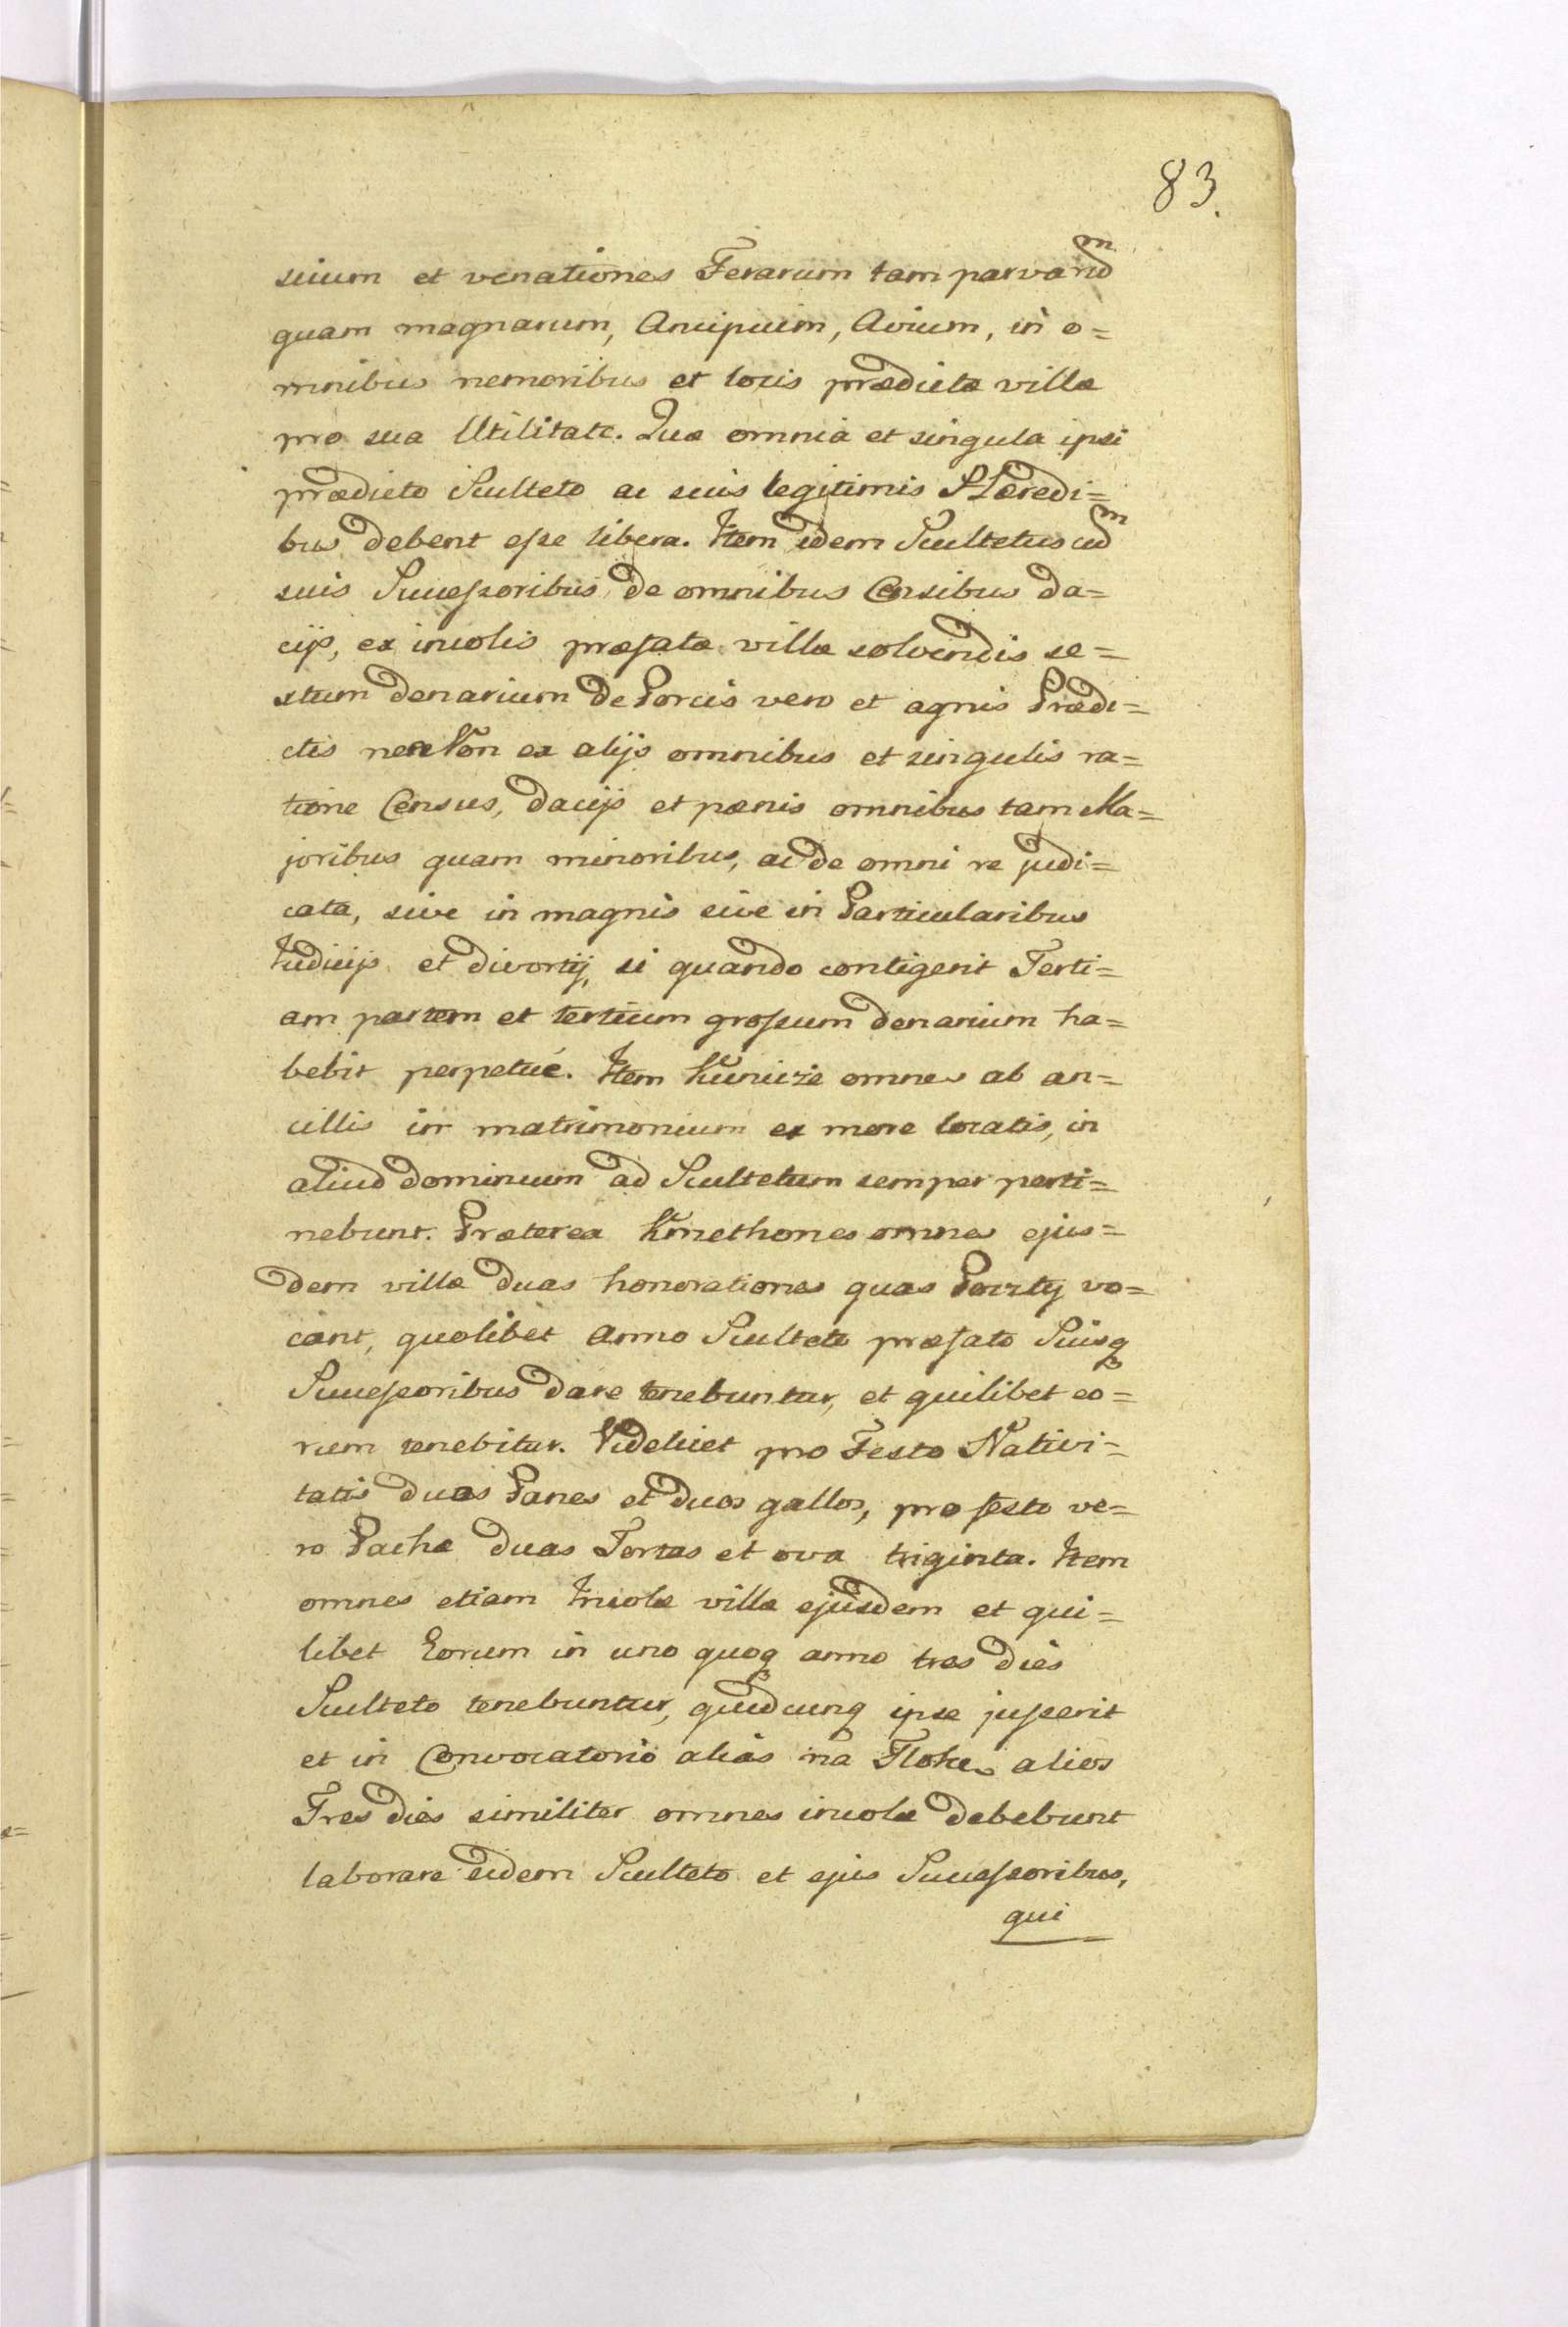 83.
scium et venationes Ferarum tam parvarum
quam magnarum, Ancipuim, Avium, in o=
mnibus nemoribus et locis prædictæ villæ
pro sua Utilitate. Quæ omnia et singula ipsi
prædicto Sculteto ac suis legitimis Hæredi=
bus debent esse libera. Item idem Scultetus cum
suis Successoribus de omnibus Censibus da=
cijs, ex incolis præfatæ villæ solvendis se=
xtum denarium de Porcis vero et agnis Prædi=
ctis nec Non ex alijs omnibus et singulis ra=
tione Census, dacijs et pænis omnibus tam Ma=
joribus quam minoribus, ac de omni re judi=
cata, sive in magnis sive in Particularibus
Judicijs et divortij, si quando contigerit Terti=
am partem et tertium grossum denarium ha=
bebit perpetué. Item Kunicze omnes ab an=
cillis in matrimonium ex more locatis, in
aliud dominium ad Scultetum semper perti=
nebunt. Præterea Kmethones omnes ejus=
dem villæ duas honorationes quas Poczty vo=
cant, quolibet anno Sculteto præfato Suisq
Successoribus dare tenebuntur, et quilibet eo=
rum tenebitur. Videlicet pro Festo Nativi=
tatis duos Panes et duos gallos, pro festo ve=
ro Pachæ duas Tortas et ova triginta. Item
omnes etiam Incolæ villæ ejusdem et qui=
libet Eorum in uno quoq anno tres dies
Sculteto tenebuntur, quidcunq ipse jusserit
et in Convocatorio alias na Tłoke alios
Tres dies similiter omnes incolæ debebunt
laborare eidem Sculteto et ejus Successoribus,
qui